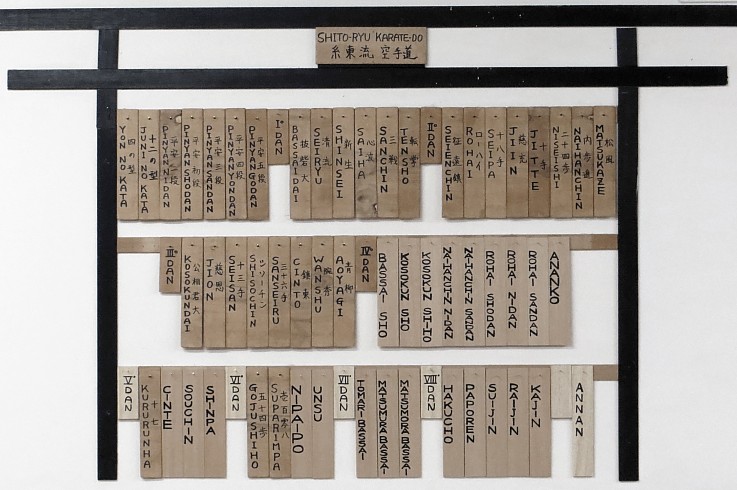 SHITO-RYU KARATE-DO
糸東流 空手道
YON NO KATA 四の型
JUNI NO KATA 十二の型
PINYAN NIDAN 平安二段
PINYAN SHODAN 平安初段
PINYAN SANDAN 平安三段
PINYAN YONDAN 平安四段
PINYAN GODAN 平安五段
I° DAN
BASSAI DAI 抜砦大
SEIRYU 清流
SHINSEI 新生
SAIFA
SANCHIN 三戦
TENSHO 転掌
II° DAN
SEIENCHIN 征遠鎮
ROHAI ロハイ
SEIPA 十八手
JIIN 慈允
JITTE 十手
NISEISHI 二十四步
NAIHANCHIN 内步進
MATSUKAZE 松風
III° DAN
KOSOKUNDAI 公相君大
JION 慈恩
SEISAN 十三手
SHISOCHIN シソーチン
SANSEIRU 三十六手
CINTO 鎮東
WANSHU 腕秀
AOYAGI 青柳
IV° DAN
BASSAI SHO
KOSOKUN SHO
KOSOKUN SHIHO
NAIHANCHIN NIDAN
NAIHANCHIN SADAN
ROHAI SHODAN
ROHAI NIDAN
ROHAI SANDAN
ANANKO
V° DAN
KURURUNHA 十七
CINTE
SOUCHIN
SHINPA
VI° DAN
GOJUSHIHO 五十四步
SUPARIMPA 壱百零八
NIPAIPO
UNSU
VII° DAN
TOMARI BASSAI
MATSUMURA BASSAI
MATSUMURA BASSAI
VIII° DAN
HAKUCHO
PAPOREN
SUIJIN
RAIJIN
KAJIN
ANNAN